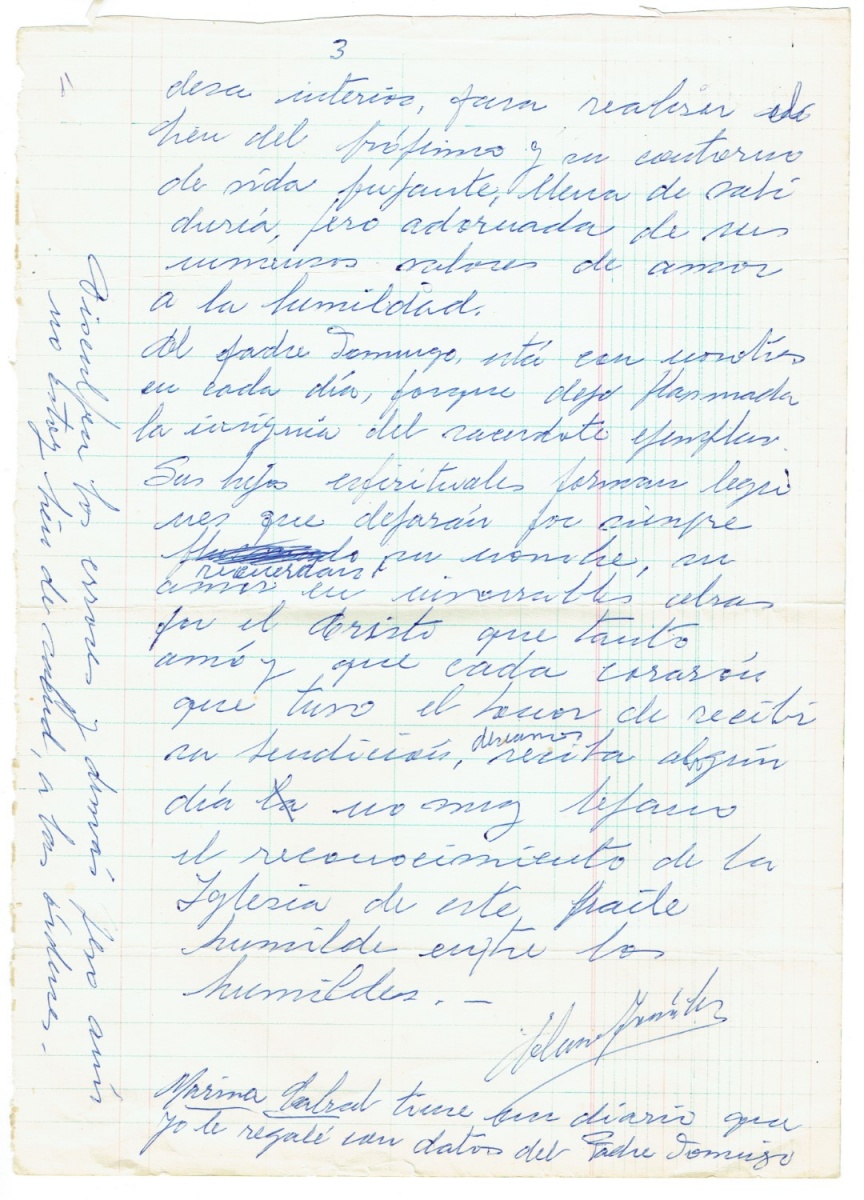 3
desa interior, para realisar el
bien del prójimo y su contorno
de vida pujante, llena de sabi
duría, pero adornada de sus
inmensos valores de amor
a la humildad.
El padre Domingo, está con nosotros
en cada día, porque dejo plasmada
la insignia del sacerdote ejemplar.
Sus hijos espirituales forman legio
nes que dejarán por siempre
recuerdan su nombre, su
amor en obras
por el Cristo que tanto
amó y que cada corazón
que tuvo el honor de recibir
su bendición, deseamos reciba algún
día no muy lejano
el reconocimiento de la
Iglesia de este fraile
humilde entre los
humildes. -
Marina Cabral tiene un diario que
yo le regalé con datos del Padre Domingo
Disculpen los errores y demás pero aún
no estoy bien de salud, a las órdenes. -